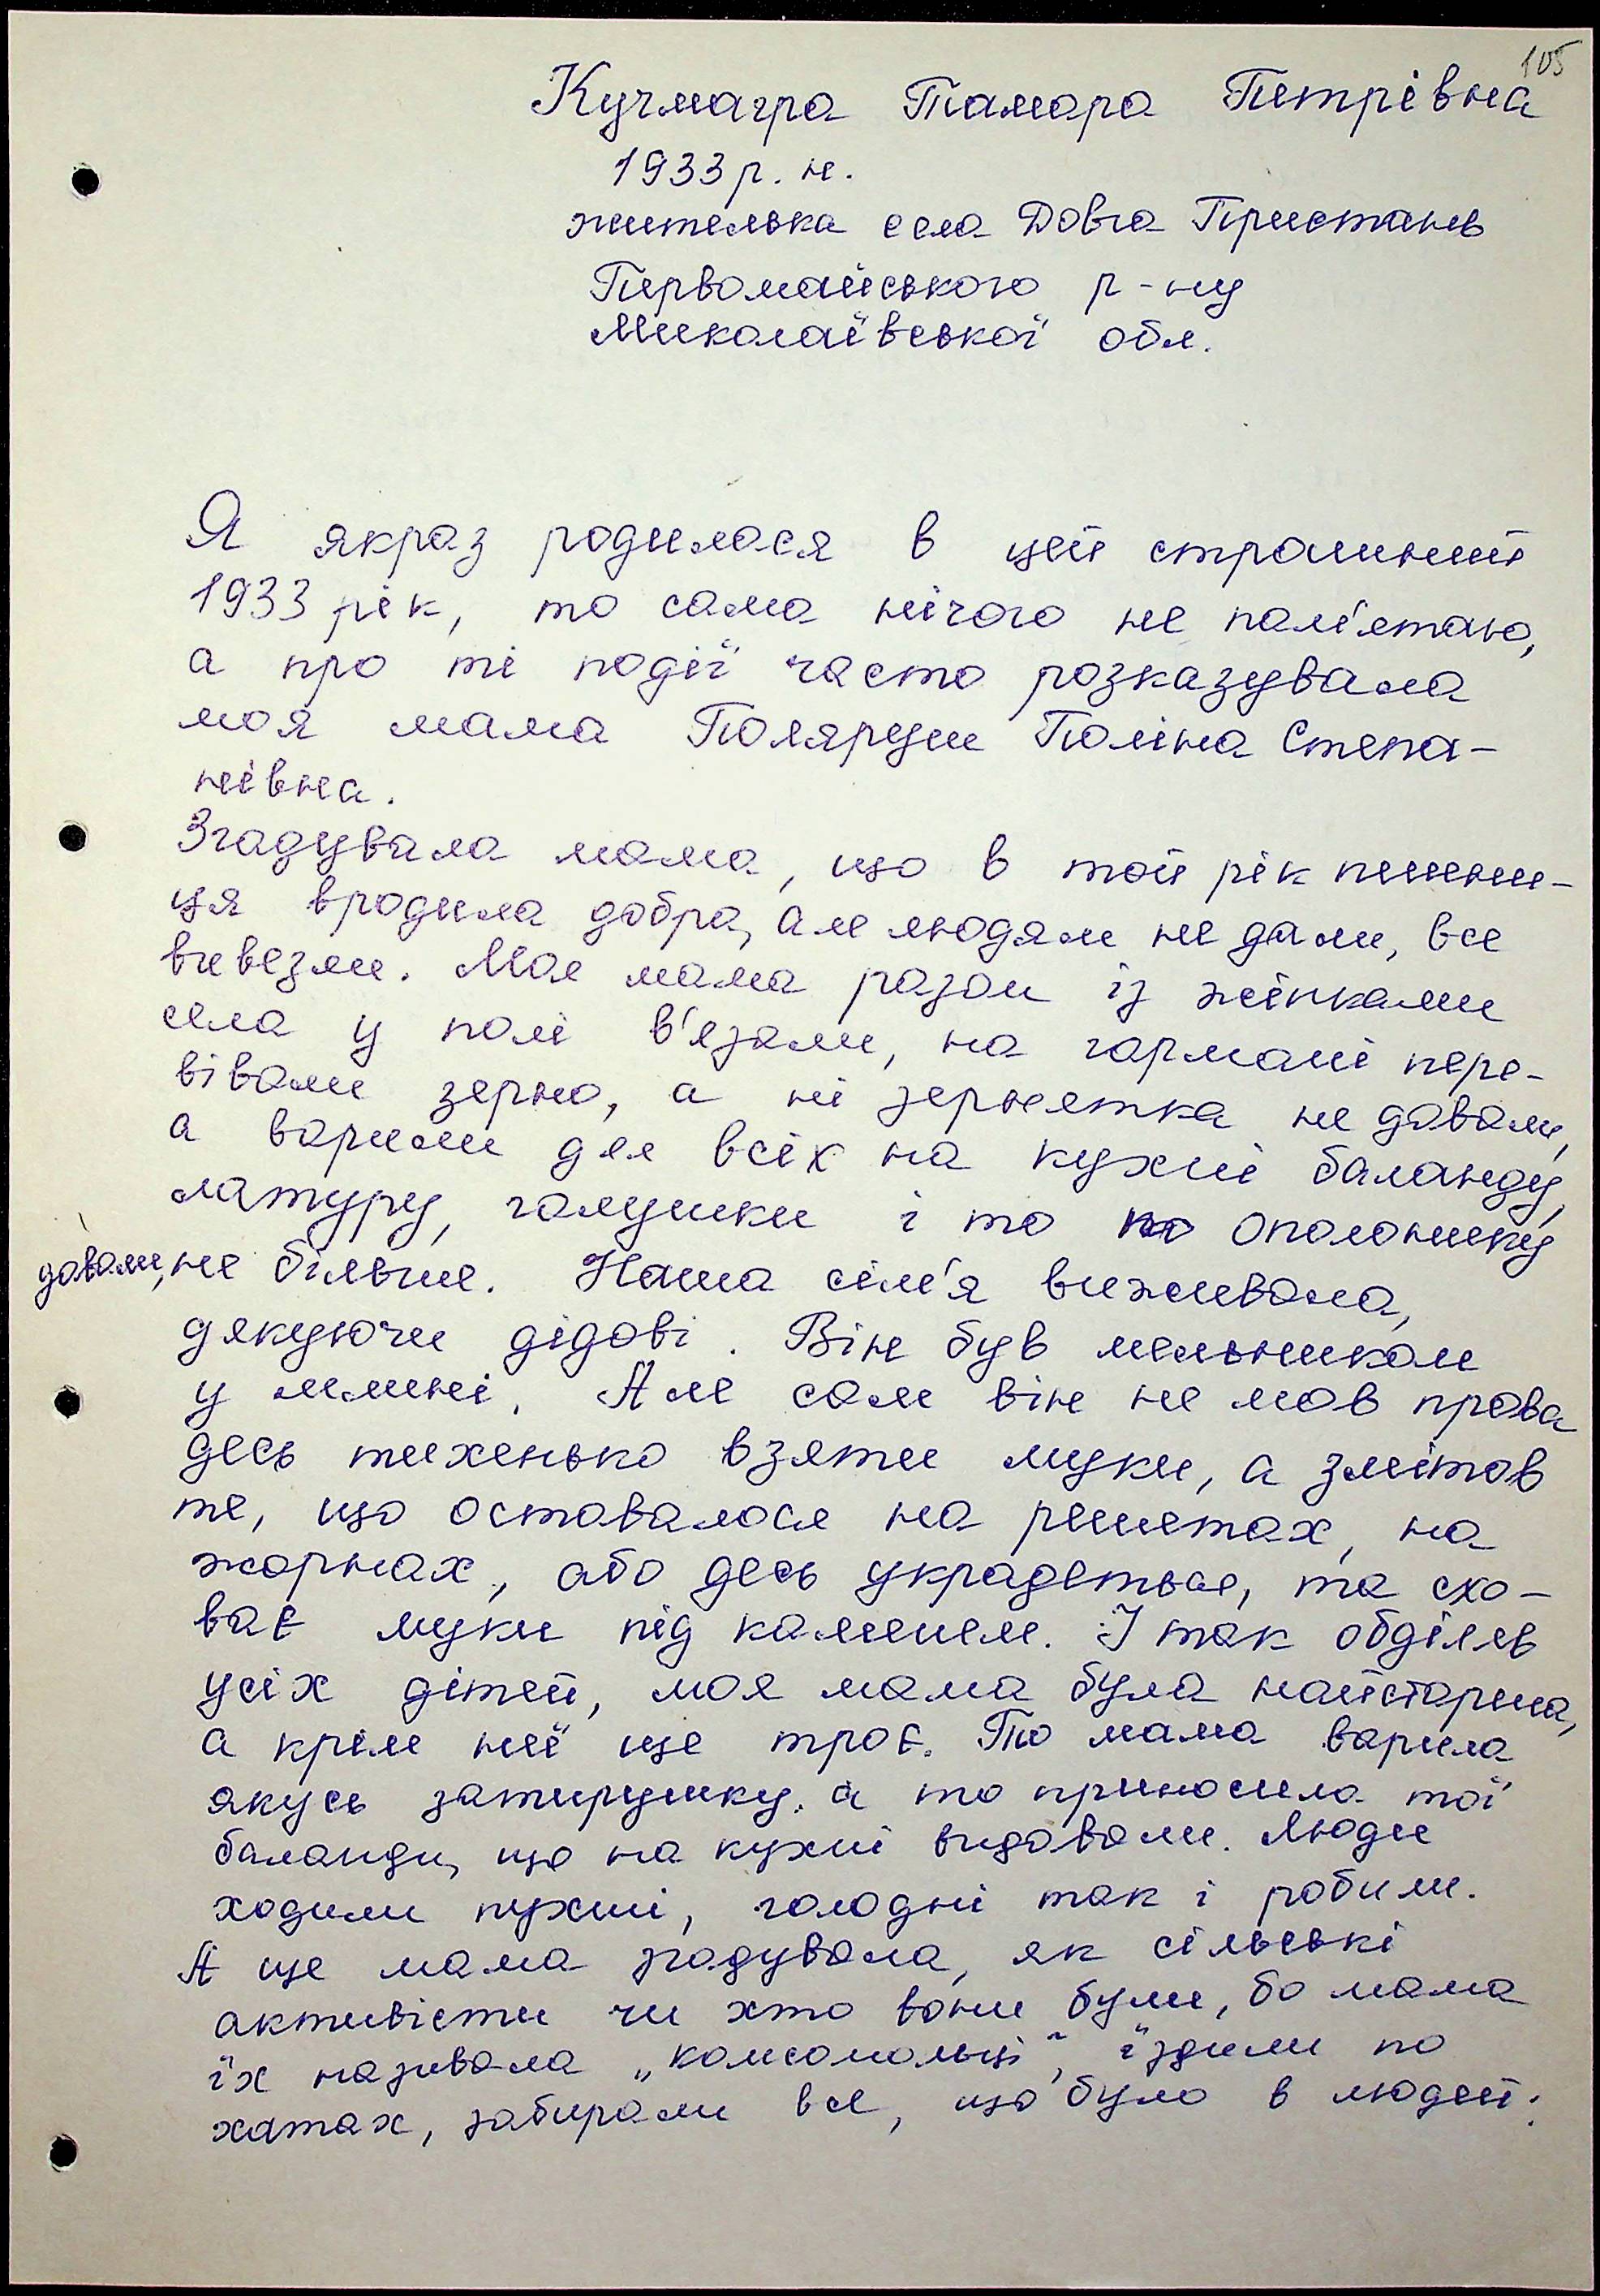 105
Кучмагра Тамара Петрівна
1933 р. н.
жителька села Довга Пристань
Первомайського р-ну
Миколаївської обл.
Я якраз родилася в цей страшний
1933 рік, то сама нічого не пам'ятаю,
а про ті події часто розказувала
моя мама Поляруш Поліна Степа-
нівна.
Згадувала мама, що в той рік пшени-
ця вродила добра, але людям не дали, все
вивезли. Моя мама разом із жінками
села у полі в'язали, на гармані пере-
вівали зерно, а ні зернятка не давали,
а варили для всіх на кухні баланду,
латуру, галушки і то по ополонику
давали, не більше. Наша сім'я виживала,
дякуючи дідові. Він був мельником
у млині. Але сам він не мав права
десь тихенько взяти муки, а змітав
те, що оставалося на решетах, на
жорнах, або десь украдеться, та схо-
ває муки під каменем. І так обділяв
усіх дітей, моя мама була найстарша,
а крім неї ще троє. То мама варила
якусь затирушку, а то приносила тої
баланди, що на кухні видавали. Люди
ходили пухлі, голодні так і робили.
А ще мама згадувала, як сільські
активісти чи хто вони були, бо мама
їх називала „комсомольці", їздили по
хатах, забирали все, що було в людей: